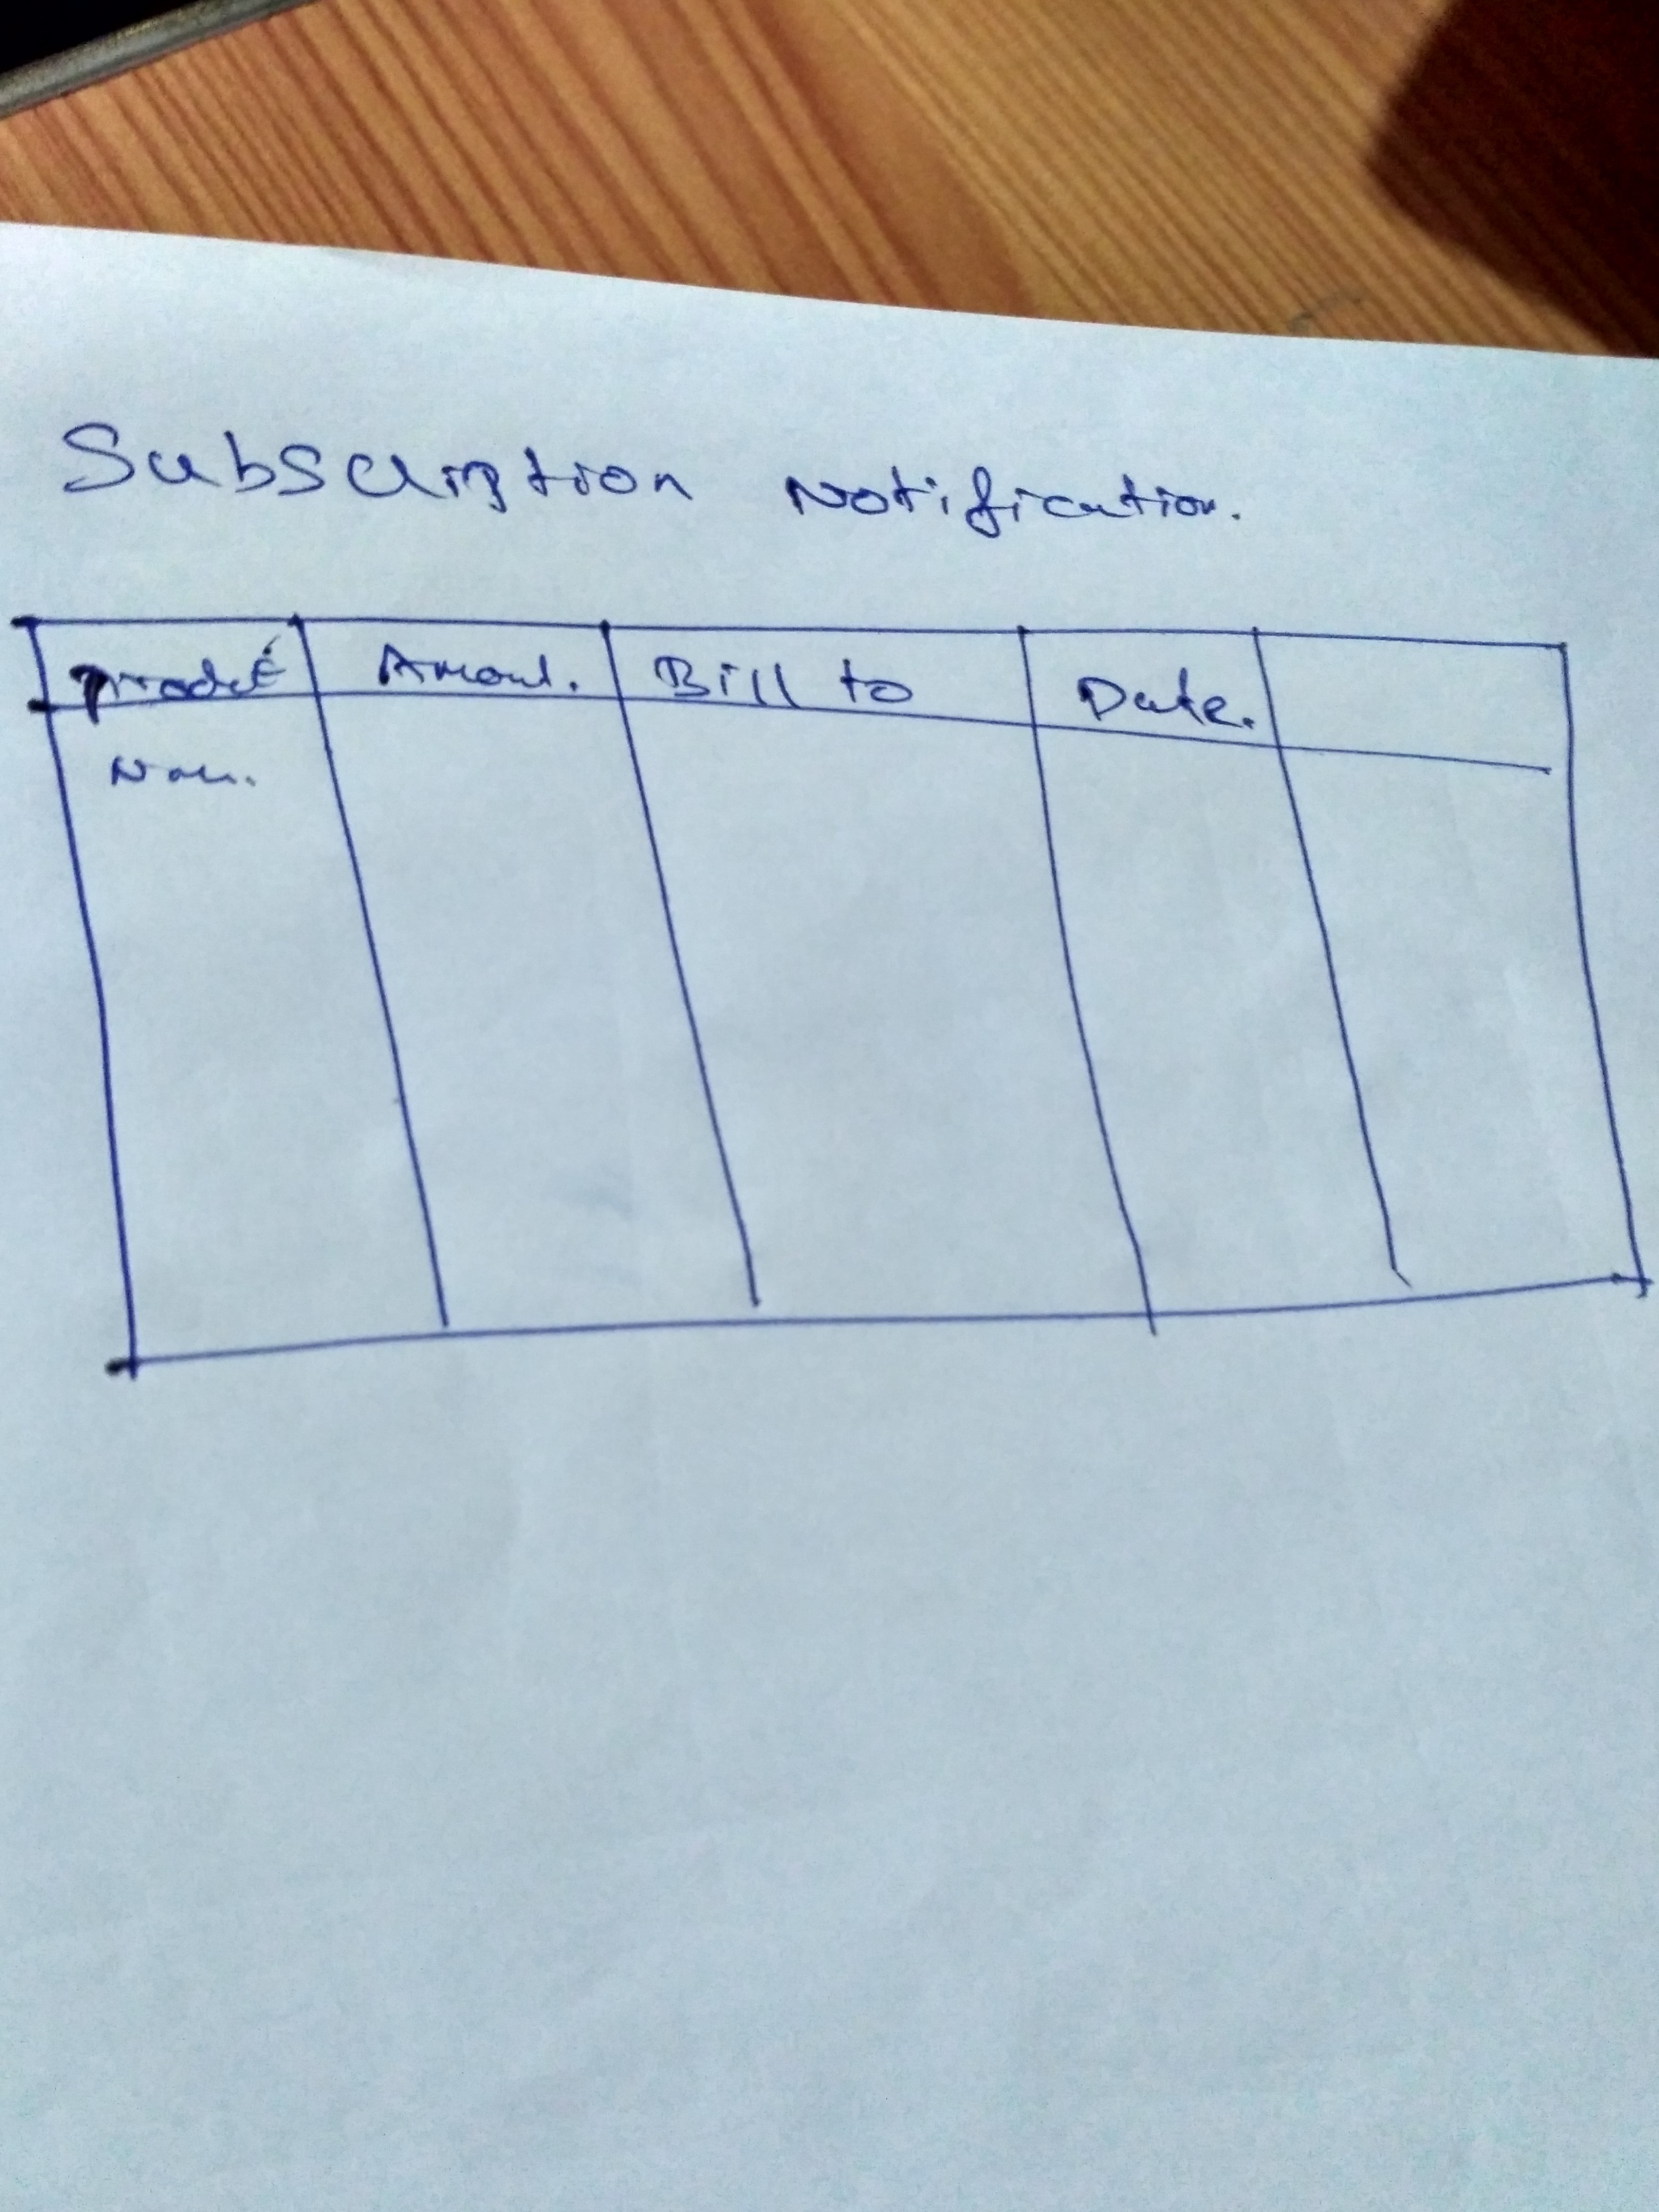 Subscription Notification.
Product Amout. Bill to Date.